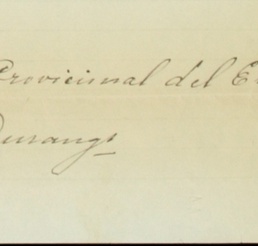 Provicional del E
Durango